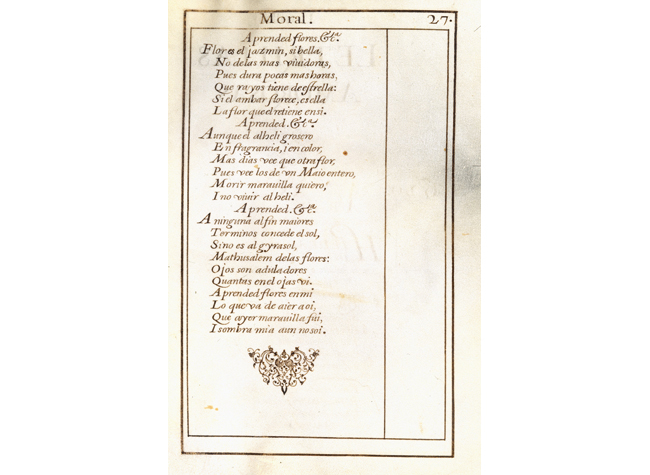 Moral. 27.
Aprended flores.&tª
Flor es el jazmin, si bella,
No de las mas viuidoras,
Pues dura pocas mas horas,
Que rayos tiene de estrella:
Si el ambar florece, es ella
La flor que el retiene en si.
Aprended.&tª
Aunque el alheli grosero
En fragrancia, i en color,
Mas dias vee que otra flor,
Pues vee los de vn Maio entero,
Morir marauilla quiero,
I no viuir alheli.
Aprended.&tª
A ninguna al fin maiores
Terminos concede el sol,
Sino es al gyrasol,
Mathusalem de las flores:
Ojos son aduladores
Quantas en el ojas vi.
Aprended flores en mi
Lo que va de aier a oi,
Que ayer marauilla fui,
I sombra mia aun no soi.